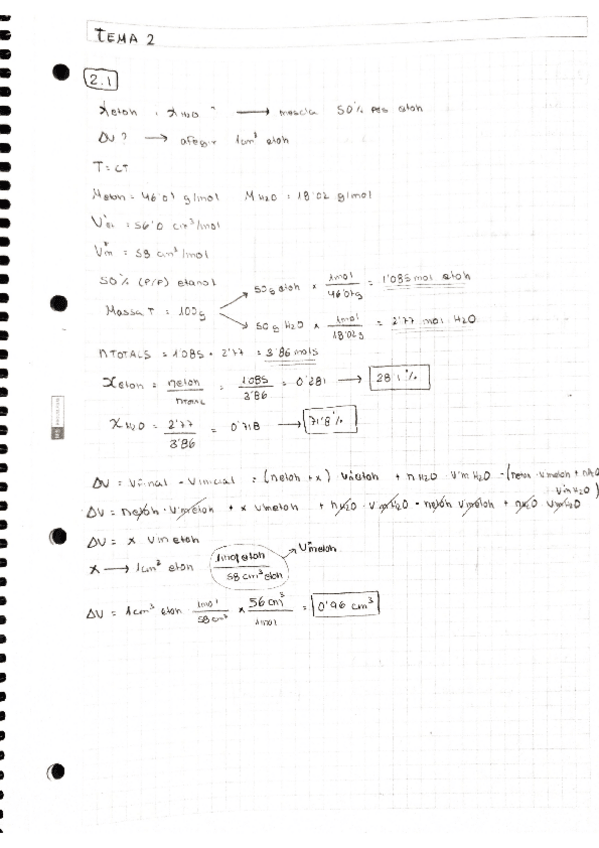 TEMA 2
2.1
Xetoh i XH2O ? → mescla 50% pes etoh
ΔV ? → afegir 1cm³ etoh
T = CT
Metoh = 46'07 g/mol MH2O = 18'02 g/mol
= 56'0 cm³/mol
= 58 cm³/mol
50% (P/P) etanol
50g etoh × 1mol / 46'07g = 1'085 mol etoh
Massa T = 100g
50g H2O × 1mol / 18'02g = 2'77 mol H2O
nTOTALS = 1'085 + 2'77 = 3'86 mols
Xetoh = netoh / nTOTAL = 1'085 / 3'86 = 0'281 → 28'1%
XH2O = 2'77 / 3'86 = 0'718 → 71'8%
ΔV = Vfinal - Vinicial = (netoh + x) Vmetoh + nH2O · VmH2O - (netoh · Vmetoh + nH2O · VmH2O)
ΔV = netoh · Vmetoh + x Vmetoh + nH2O · VmH2O - netoh Vmetoh + nH2O VmH2O
ΔV = x Vmetoh
x → 1cm³ etoh 1mol etoh / 58 cm³ etoh → V*metoh
ΔV = 1cm³ etoh · 1mol / 58cm³ × 56cm³ / 1mol = 0'96 cm³